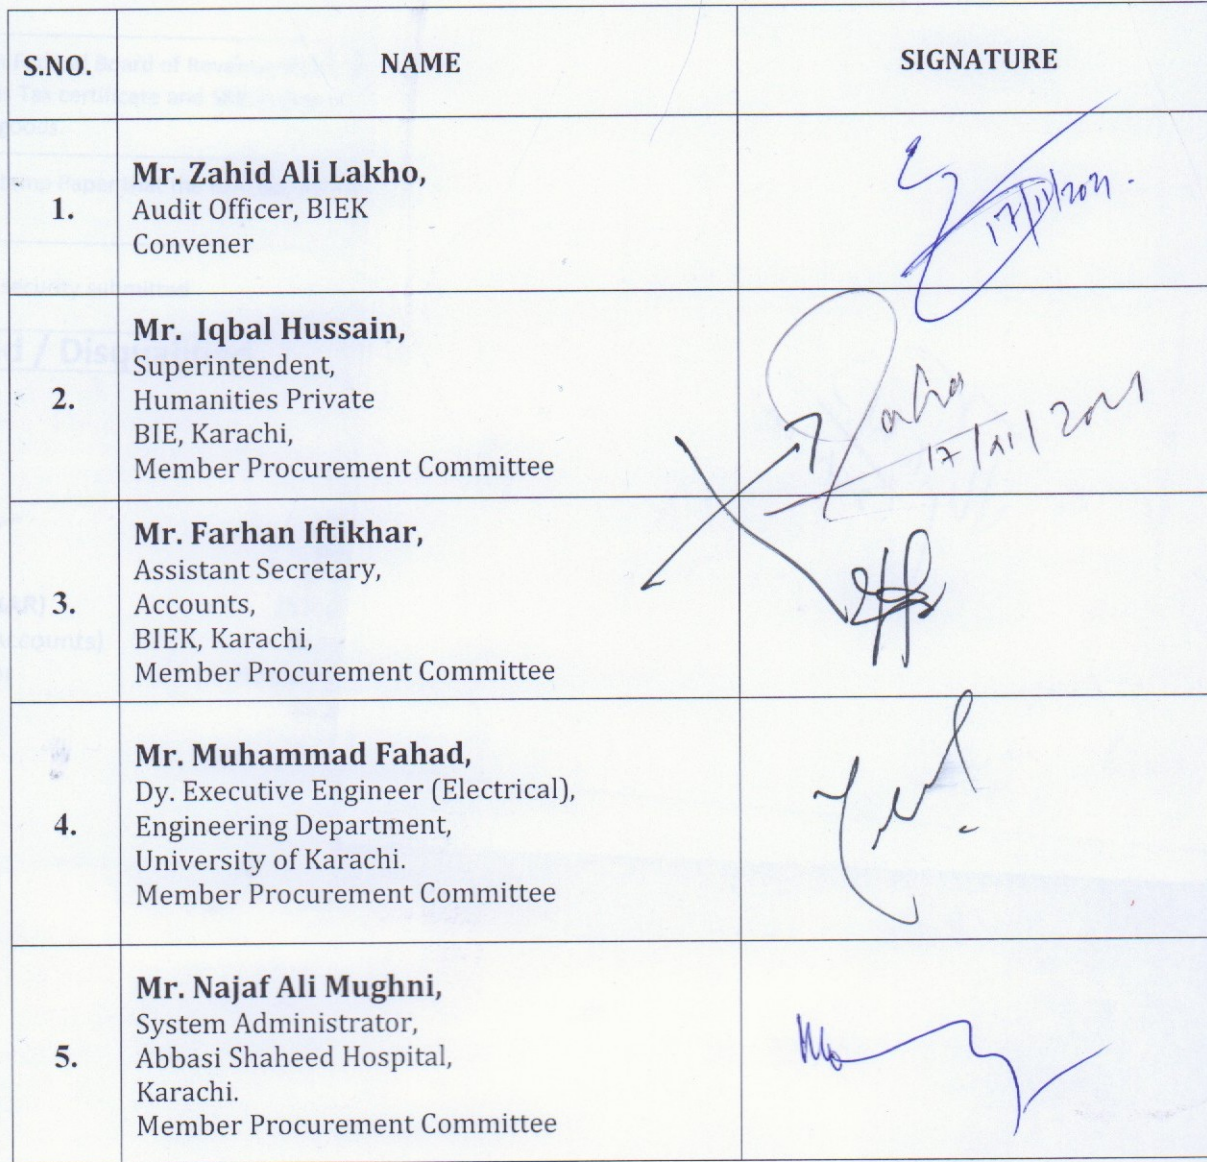 S.NO. NAME SIGNATURE
1.
Mr. Zahid Ali Lakho,
Audit Officer, BIEK
Convener
17/11/2021.
2.
Mr. Iqbal Hussain,
Superintendent,
Humanities Private
BIE, Karachi,
Member Procurement Committee
17/11/2021
3.
Mr. Farhan Iftikhar,
Assistant Secretary,
Accounts,
BIEK, Karachi,
Member Procurement Committee
4.
Mr. Muhammad Fahad,
Dy. Executive Engineer (Electrical),
Engineering Department,
University of Karachi.
Member Procurement Committee
5.
Mr. Najaf Ali Mughni,
System Administrator,
Abbasi Shaheed Hospital,
Karachi.
Member Procurement Committee